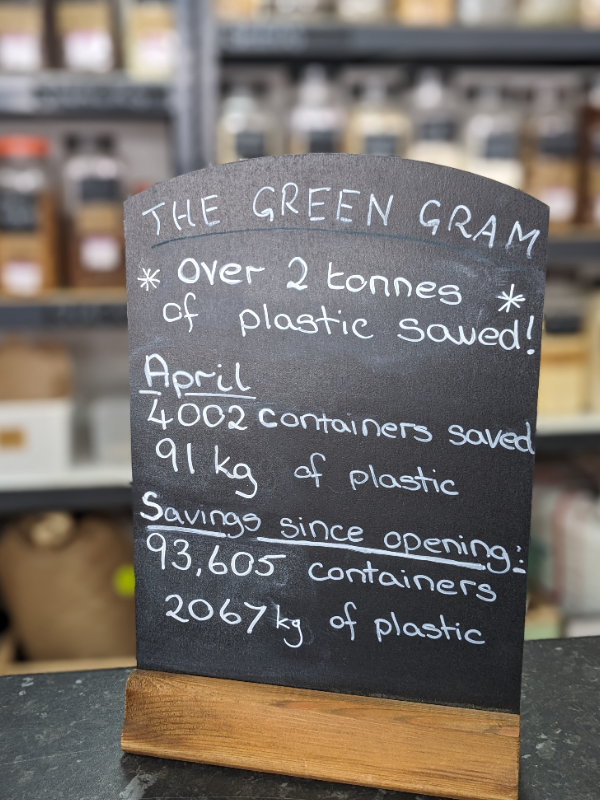 THE GREEN GRAM
* Over 2 tonnes *
of plastic saved!
April
4002 containers saved
91 kg of plastic
Savings since opening:
93,605 containers
2067 kg of plastic